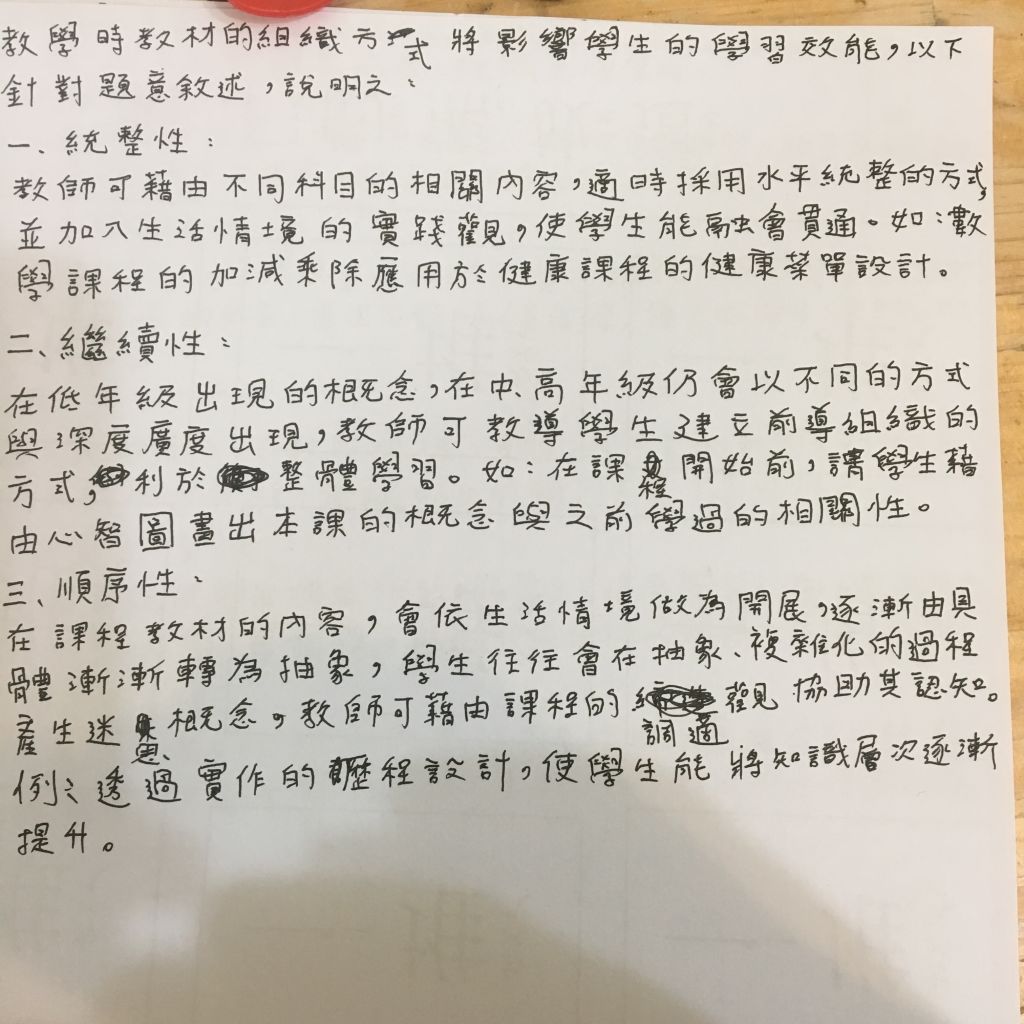 教學時教材的組織方式將影響學生的學習效能，以下
針對題意敘述，說明之：
一、統整性：
教師可藉由不同科目的相關內容，適時採用水平統整的方式，
並加入生活情境的實踐觀，使學生能融會貫通。如：數
學課程的加減乘除應用於健康課程的健康菜單設計。
二、繼續性：
在低年級出現的概念，在中、高年級仍會以不同的方式
與深度廣度出現，教師可教導學生建立前導組織的
方式，利於整體學習。如：在課程開始前，請學生藉
由心智圖畫出本課的概念與之前學過的相關性。
三、順序性：
在課程教材的內容，會依生活情境做為開展，逐漸由具
體漸漸轉為抽象，學生往往會在抽象、複雜化的過程
產生迷思概念。教師可藉由課程的調適觀協助其認知。
例：透過實作的歷程設計，使學生能將知識層次逐漸
提升。